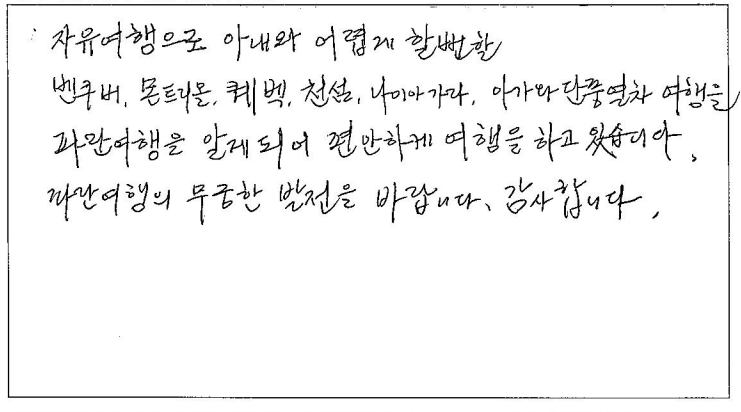 자유여행으로 아내와 어렵게 할뻔할
벤쿠버, 몬트리올, 퀘벡, 천섬, 나이아가라, 아가와단풍열차 여행을
파란여행을 알게되어 편안하게 여행을 하고 왔습니다.
파란여행의 무궁한 발전을 바랍니다. 감사합니다.